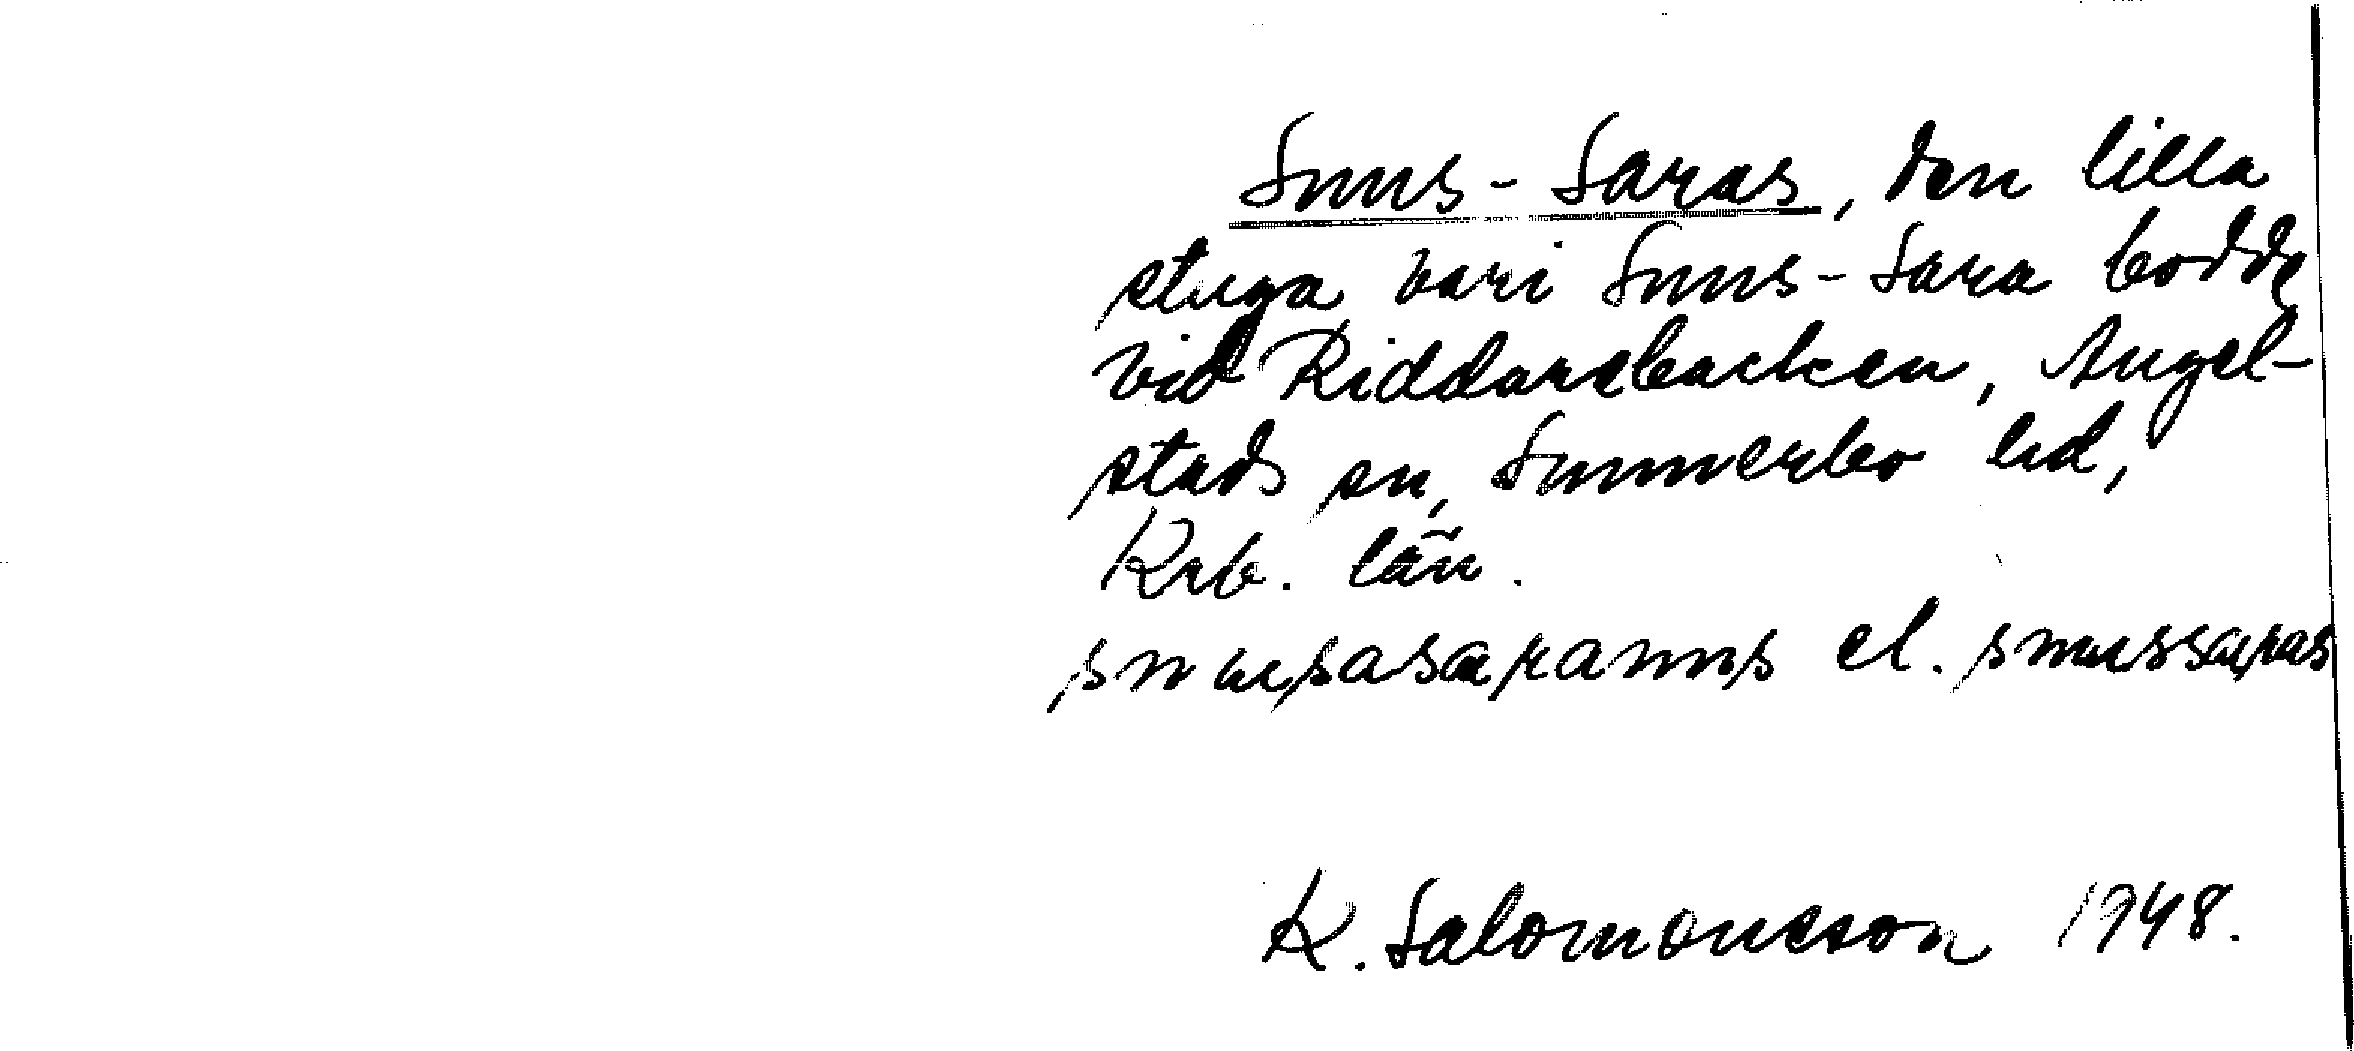 Snus-Saras, den lilla
stuga vari Snus-Sara bodde
vid Riddarebacken, Angel-
stads sn, Sunnerbo hd,
Krb. län.
snusasaranns el. snussaras
K. Salomonsson 1948.